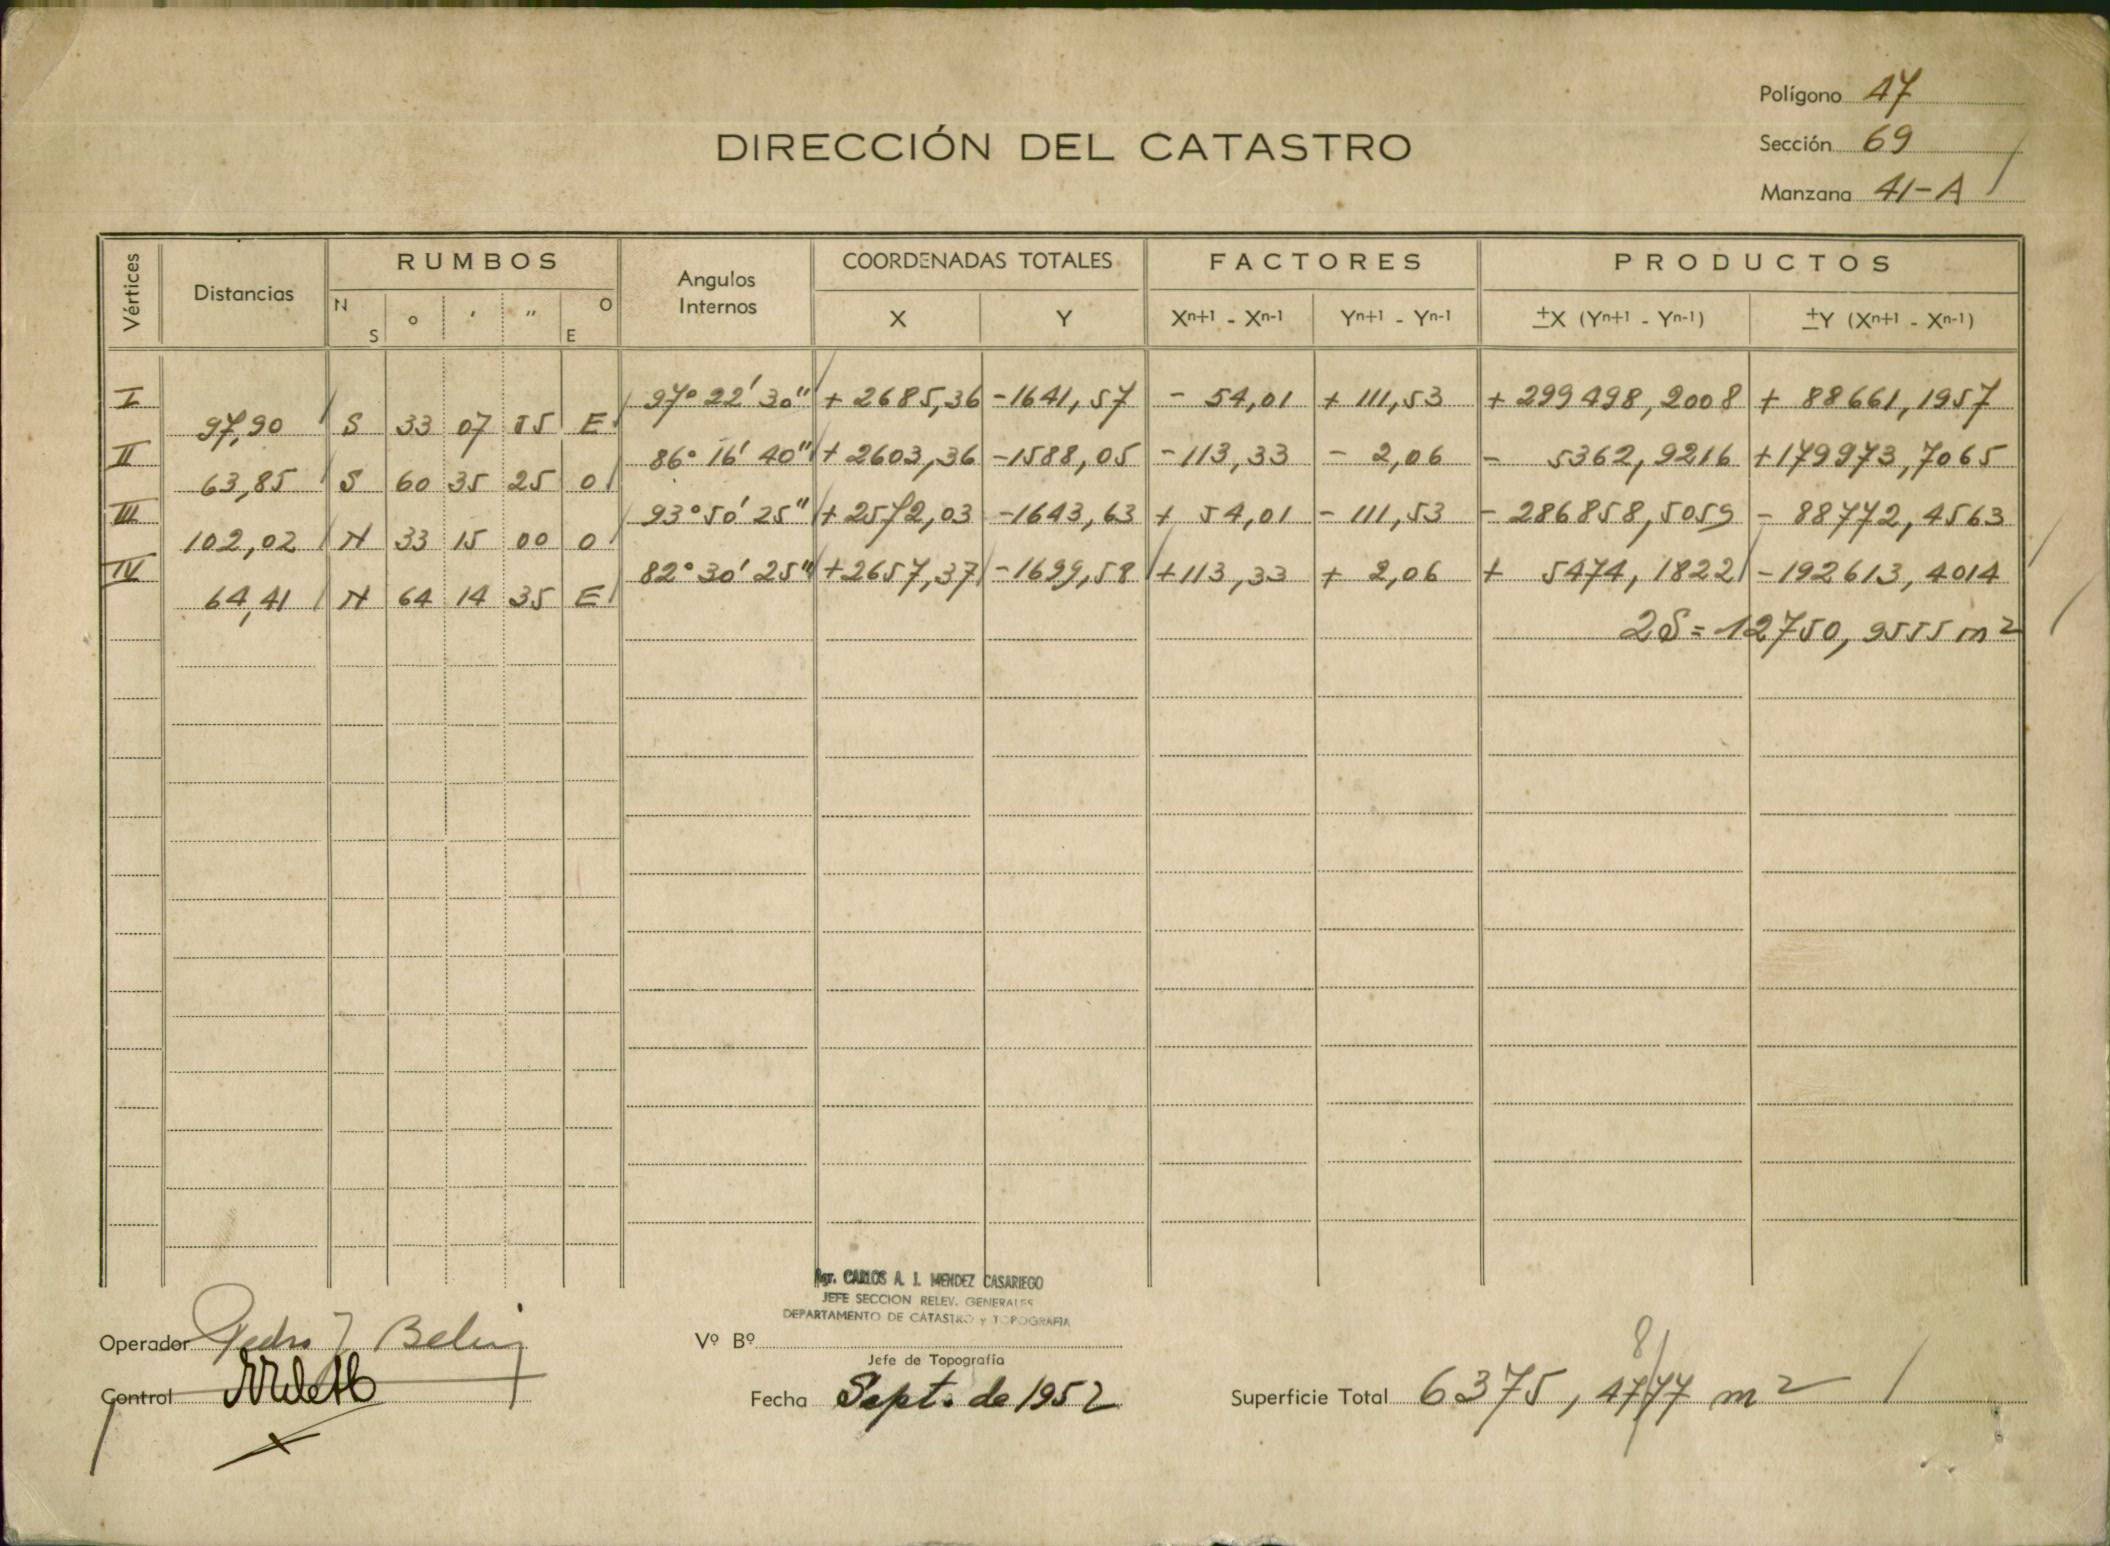 Polígono 47
DIRECCIÓN DEL CATASTRO
Sección 69
Manzana 41-A
Vértices Distancias RUMBOS Angulos Internos COORDENADAS TOTALES FACTORES PRODUCTOS
N S ° ' " O E X Y Xn+1 - Xn-1 Yn+1 - Yn-1 ±X (Yn+1 - Yn-1) ±Y (Xn+1 - Xn-1)
I 97° 22' 30" + 2685,36 -1641,57 - 54,01 + 111,53 + 299498,2008 + 88661,1957
97,90 S 33 07 55 E
II 86° 16' 40" + 2603,36 -1588,05 -113,33 - 2,06 - 5362,9216 +179973,7065
63,85 S 60 35 25 O
III 93° 50' 25" + 2572,03 -1643,63 + 54,01 - 111,53 - 286858,5059 - 88772,4563
102,02 N 33 15 00 O
IV 82° 30' 25" +2657,37 -1699,58 +113,33 + 2,06 + 5474,1822 -192613,4014
64,41 N 64 14 35 E
2S = 12750,9555 m2
Agr. CARLOS A. I. MENDEZ CASARIEGO
JEFE SECCION RELEV. GENERALES
DEPARTAMENTO DE CATASTRO y TOPOGRAFIA
Operador Pedro J.
Vº Bº
Jefe de Topografía
Control
Fecha Sept. de 1952
8
Superficie Total 6375,4777 m2